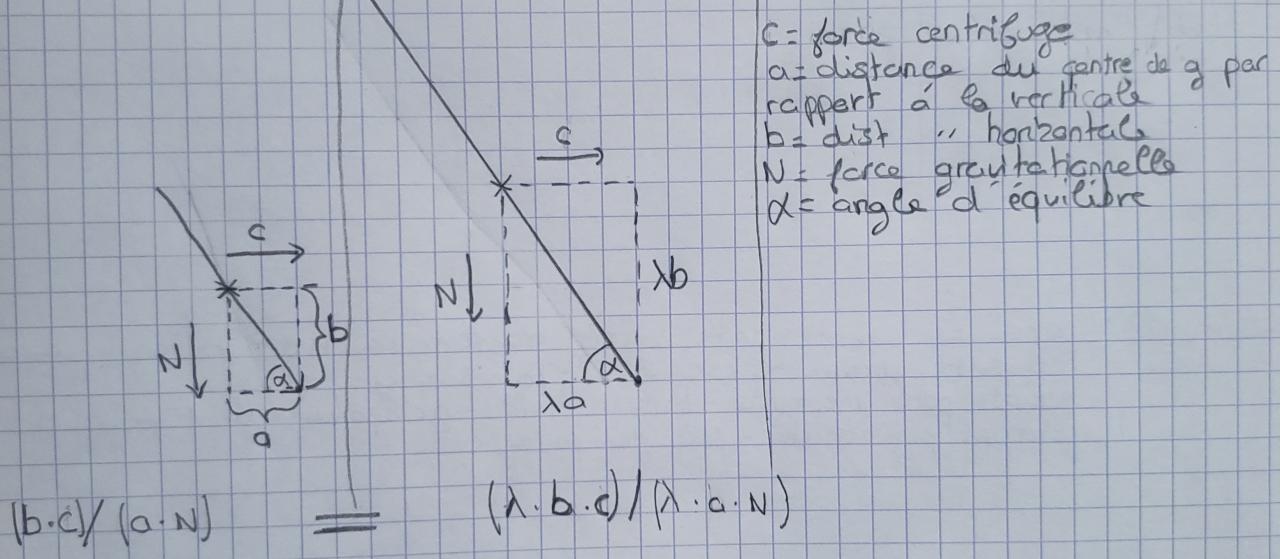 c = force centrifuge
a = distance du centre de g par
rapport à la verticale
b = dist " horizontale
N = force gravitationnelle
α = angle d'équilibre
c
c
N
b
α
a
N
λb
α
λa
(b·c)/(a·N) = (λ·b·c)/(λ·a·N)